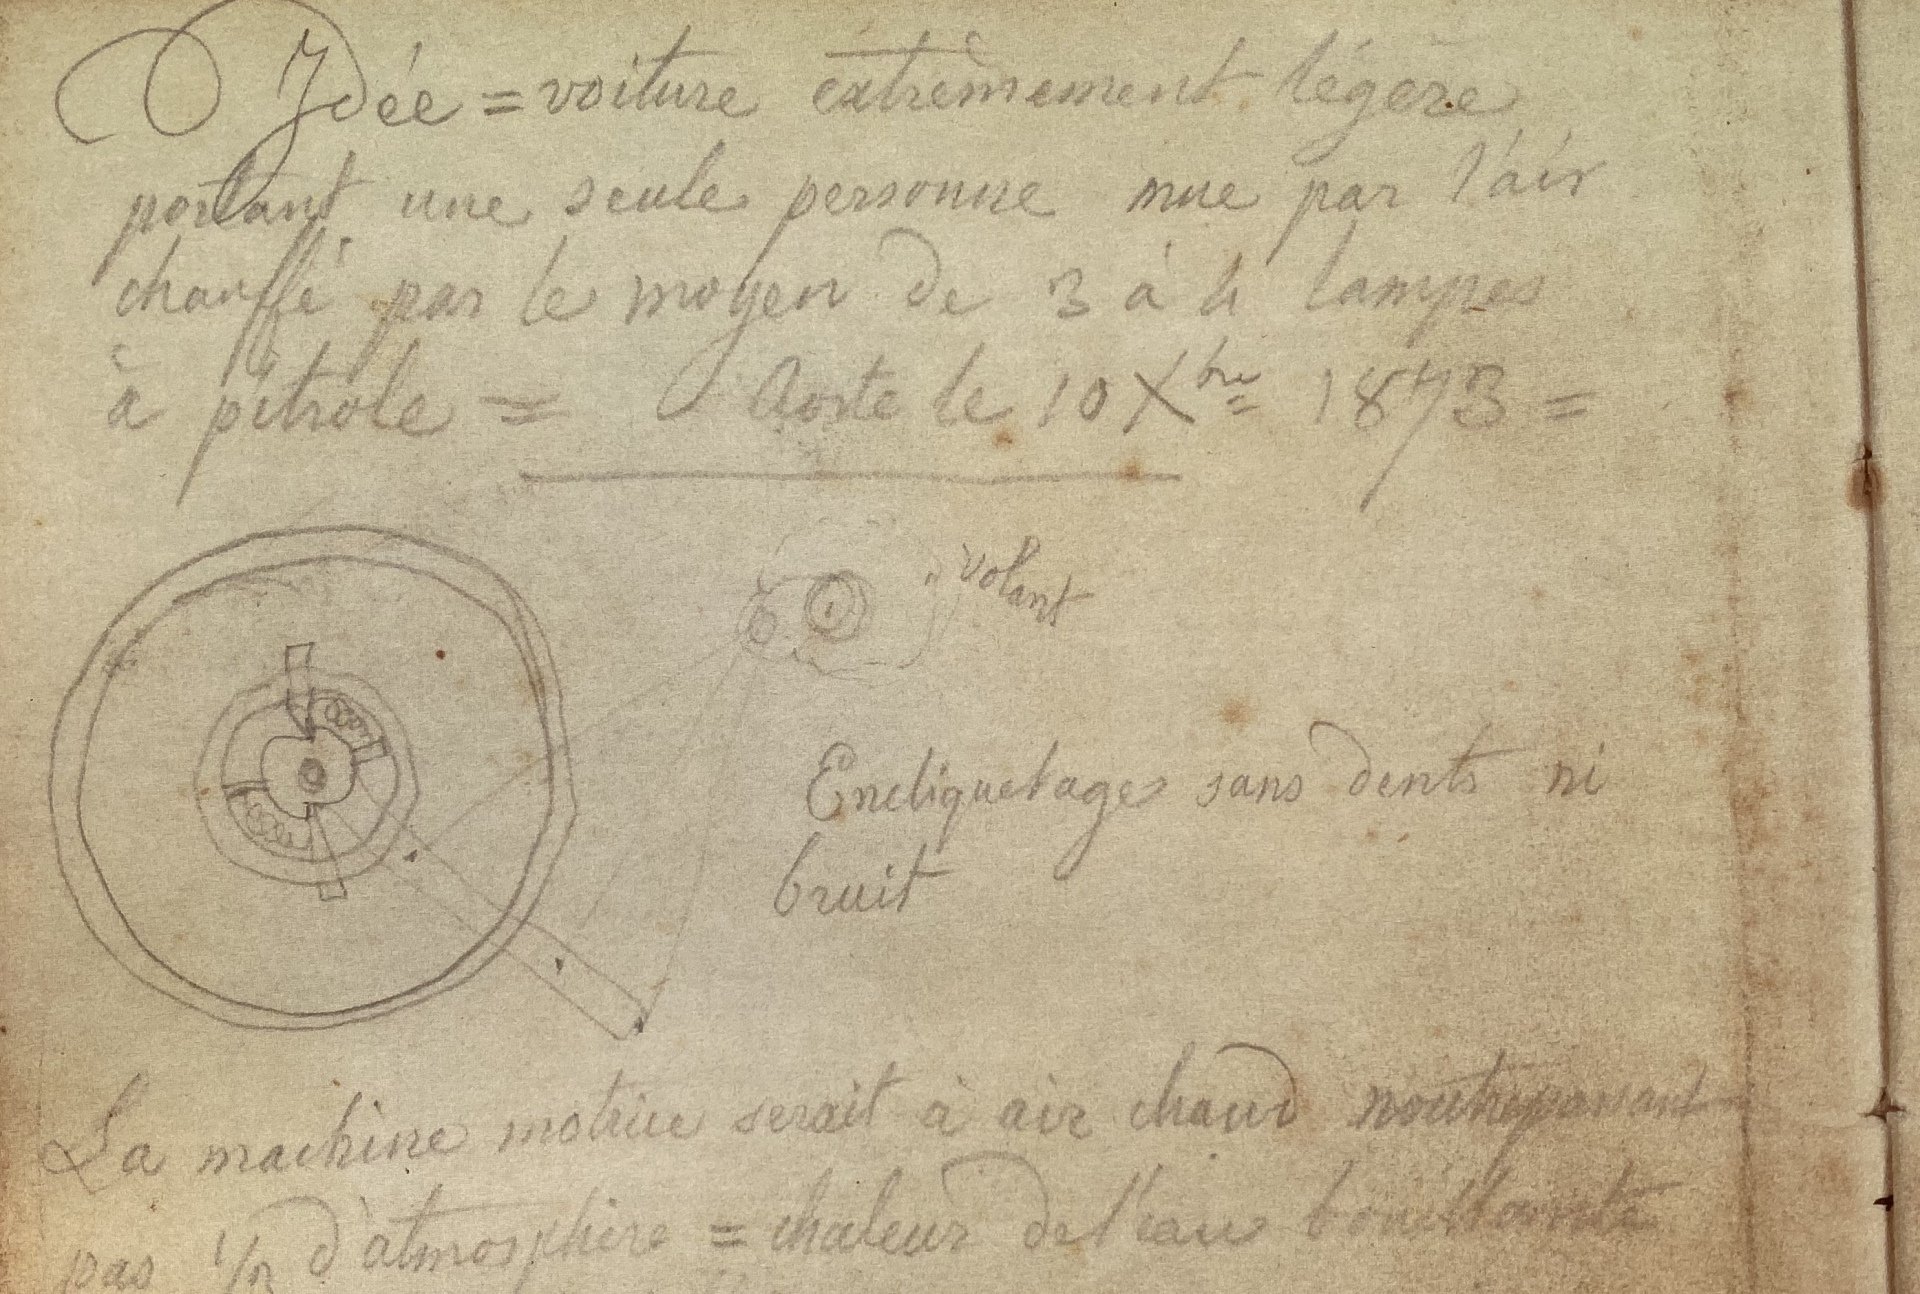 Idée = voiture extrêmement légère
portant une seule personne mue par l'air
chauffé par le moyen de 3 à 4 lampes
à pétrole = Aoste le 10 Xbre 1873 =
volant
Encliquetages sans dents ni
bruit
La machine motrice serait à air chaud
pas 1/2 d'atmosphère = chaleur de l'eau bouillante